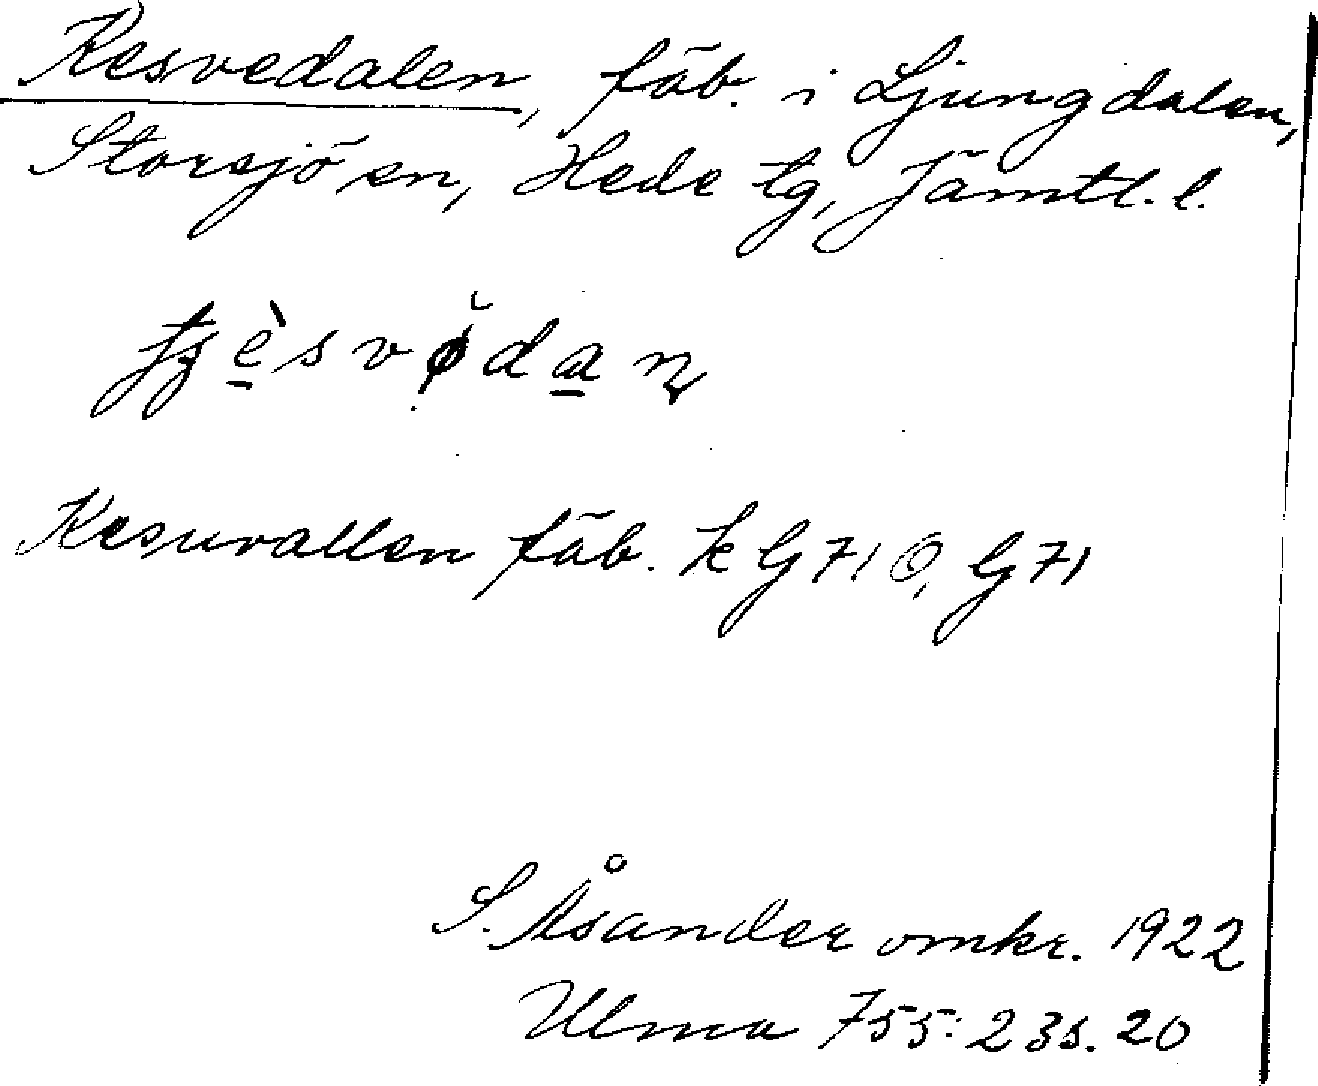 Kesvedalen, fäb. i Ljungdalen,
Storsjö sn, Hede tg, Jämtl. l.
Kesuvallen fäb. k G71 Ö, G71
S. Åsander omkr. 1922
Ulma 755: 2 3 s. 20